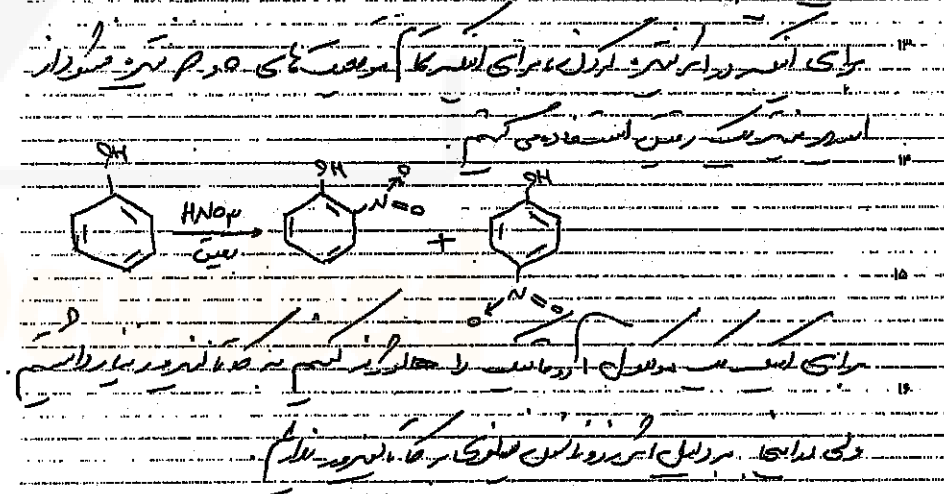 ۱۳
برای اینکه در اثر نیتره کردن، برای اینکه تمام موقعیت‌های ۵ و ۳ نیتره نشود از
اسید نیتریک رقیق استفاده می کنیم
۱۴
OH OH OH
HNO۳ N=O O +
رقیق
۱۵
N=O O
برای اینکه یک مولکول آروماتیک را هالوژنه کنیم به کاتالیزور نیاز داریم.
۱۶
ولی در اینجا به دلیل اثر رزونانسی نیازی به کاتالیزور نداریم.